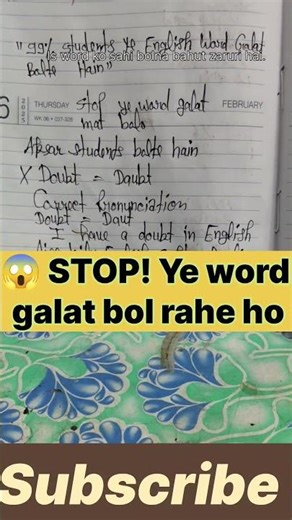 "99% students ye English Word Galat
Is word ko sahi bolna bahut zaruri hai.
Bolte Hain"
6
2025
THURSDAY
WK 06 • 037-328
FEBRUARY
Stop ye word galat
mat bolo
Aksar students bolte hain
X Doubt = Daubt
Correct Pronunciation
Doubt = Daut
I have a doubt in English
😱 STOP! Ye word
galat bol rahe ho
Subscribe